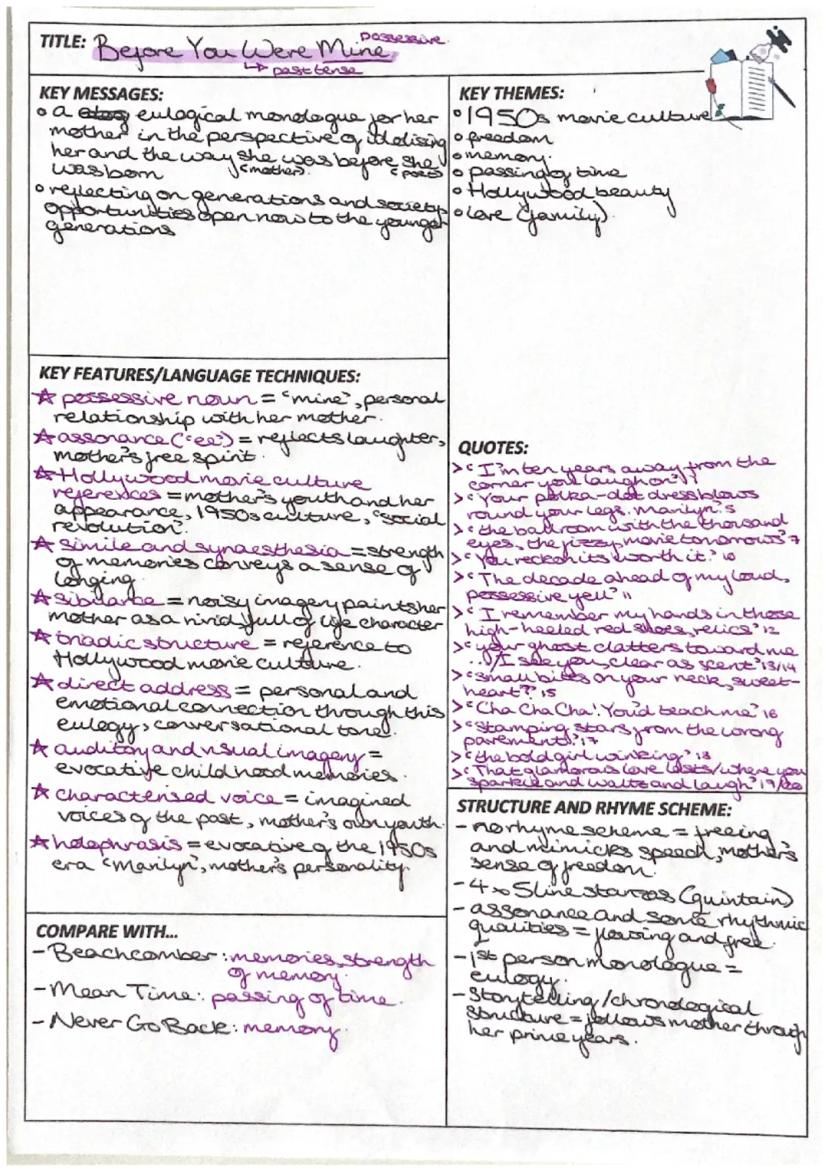 possessive
TITLE: Before You Were Mine
↳ past tense
KEY MESSAGES:
o a eulogical monologue for her
mother in the perspective of idolising
her and the way she was before she
was born (mother) (poet)
o reflecting on generations and society,
opportunities open now to the younger
generations
KEY THEMES:
o 1950s movie culture
o freedom
o memory
o passing of time
o Hollywood beauty
o love (family)
KEY FEATURES/LANGUAGE TECHNIQUES:
☆ possessive noun = "mine", personal
relationship with her mother.
☆ assonance ("ee") = reflects laughter,
mother's free spirit.
☆ Hollywood movie culture
references = mother's youth and her
appearance, 1950s culture, "social
revolution".
☆ simile and synaesthesia = strength
of memories conveys a sense of
longing.
☆ sibilance = noisy imagery paints her
mother as a vivid, full of life character
☆ triadic structure = reference to
Hollywood movie culture.
☆ direct address = personal and
emotional connection through this
eulogy, conversational tone.
☆ auditory and visual imagery =
evocative childhood memories.
☆ characterised voice = imagined
voices of the past, mother's own youth.
☆ holophrasis = evocative of the 1950s
era "Marilyn", mother's personality.
QUOTES:
> "I'm ten years away from the
corner you laugh on" 1
> "Your polka-dot dress blows
round your legs. Marilyn." 5
> "the ballroom with the thousand
eyes, the fizzy, movie tomorrows" 7
> "You reckon it's worth it." 10
> "The decade ahead of my loud,
possessive yell" 11
> "I remember my hands in those
high-heeled red shoes, relics" 12
> "your ghost clatters toward me
.../I see you, clear as scent" 13/14
> "small bites on your neck, sweet-
heart?" 15
> "Cha Cha Cha! You'd teach me" 16
> "stamping stars from the wrong
pavement." 17
> "the bold girl winking" 18
> "That glamorous love lasts/where you
sparkle and waltz and laugh" 19/20
STRUCTURE AND RHYME SCHEME:
- no rhyme scheme = freeing
and mimicks speech, mother's
sense of freedom.
- 4x 5 line stanzas (quintain)
- assonance and some rhythmic
qualities = flowing and free.
- 1st person monologue =
eulogy.
- Storytelling/chronological
structure = follows mother through
her prime years.
COMPARE WITH...
- Beachcomber: memories, strength
of memory
- Mean Time: passing of time.
- Never Go Back: memory.